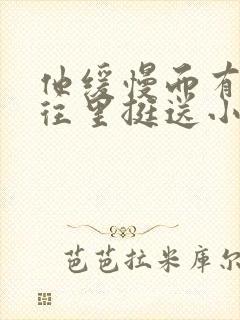 他缓慢而有
往里挺送小
芭芭拉米库尔